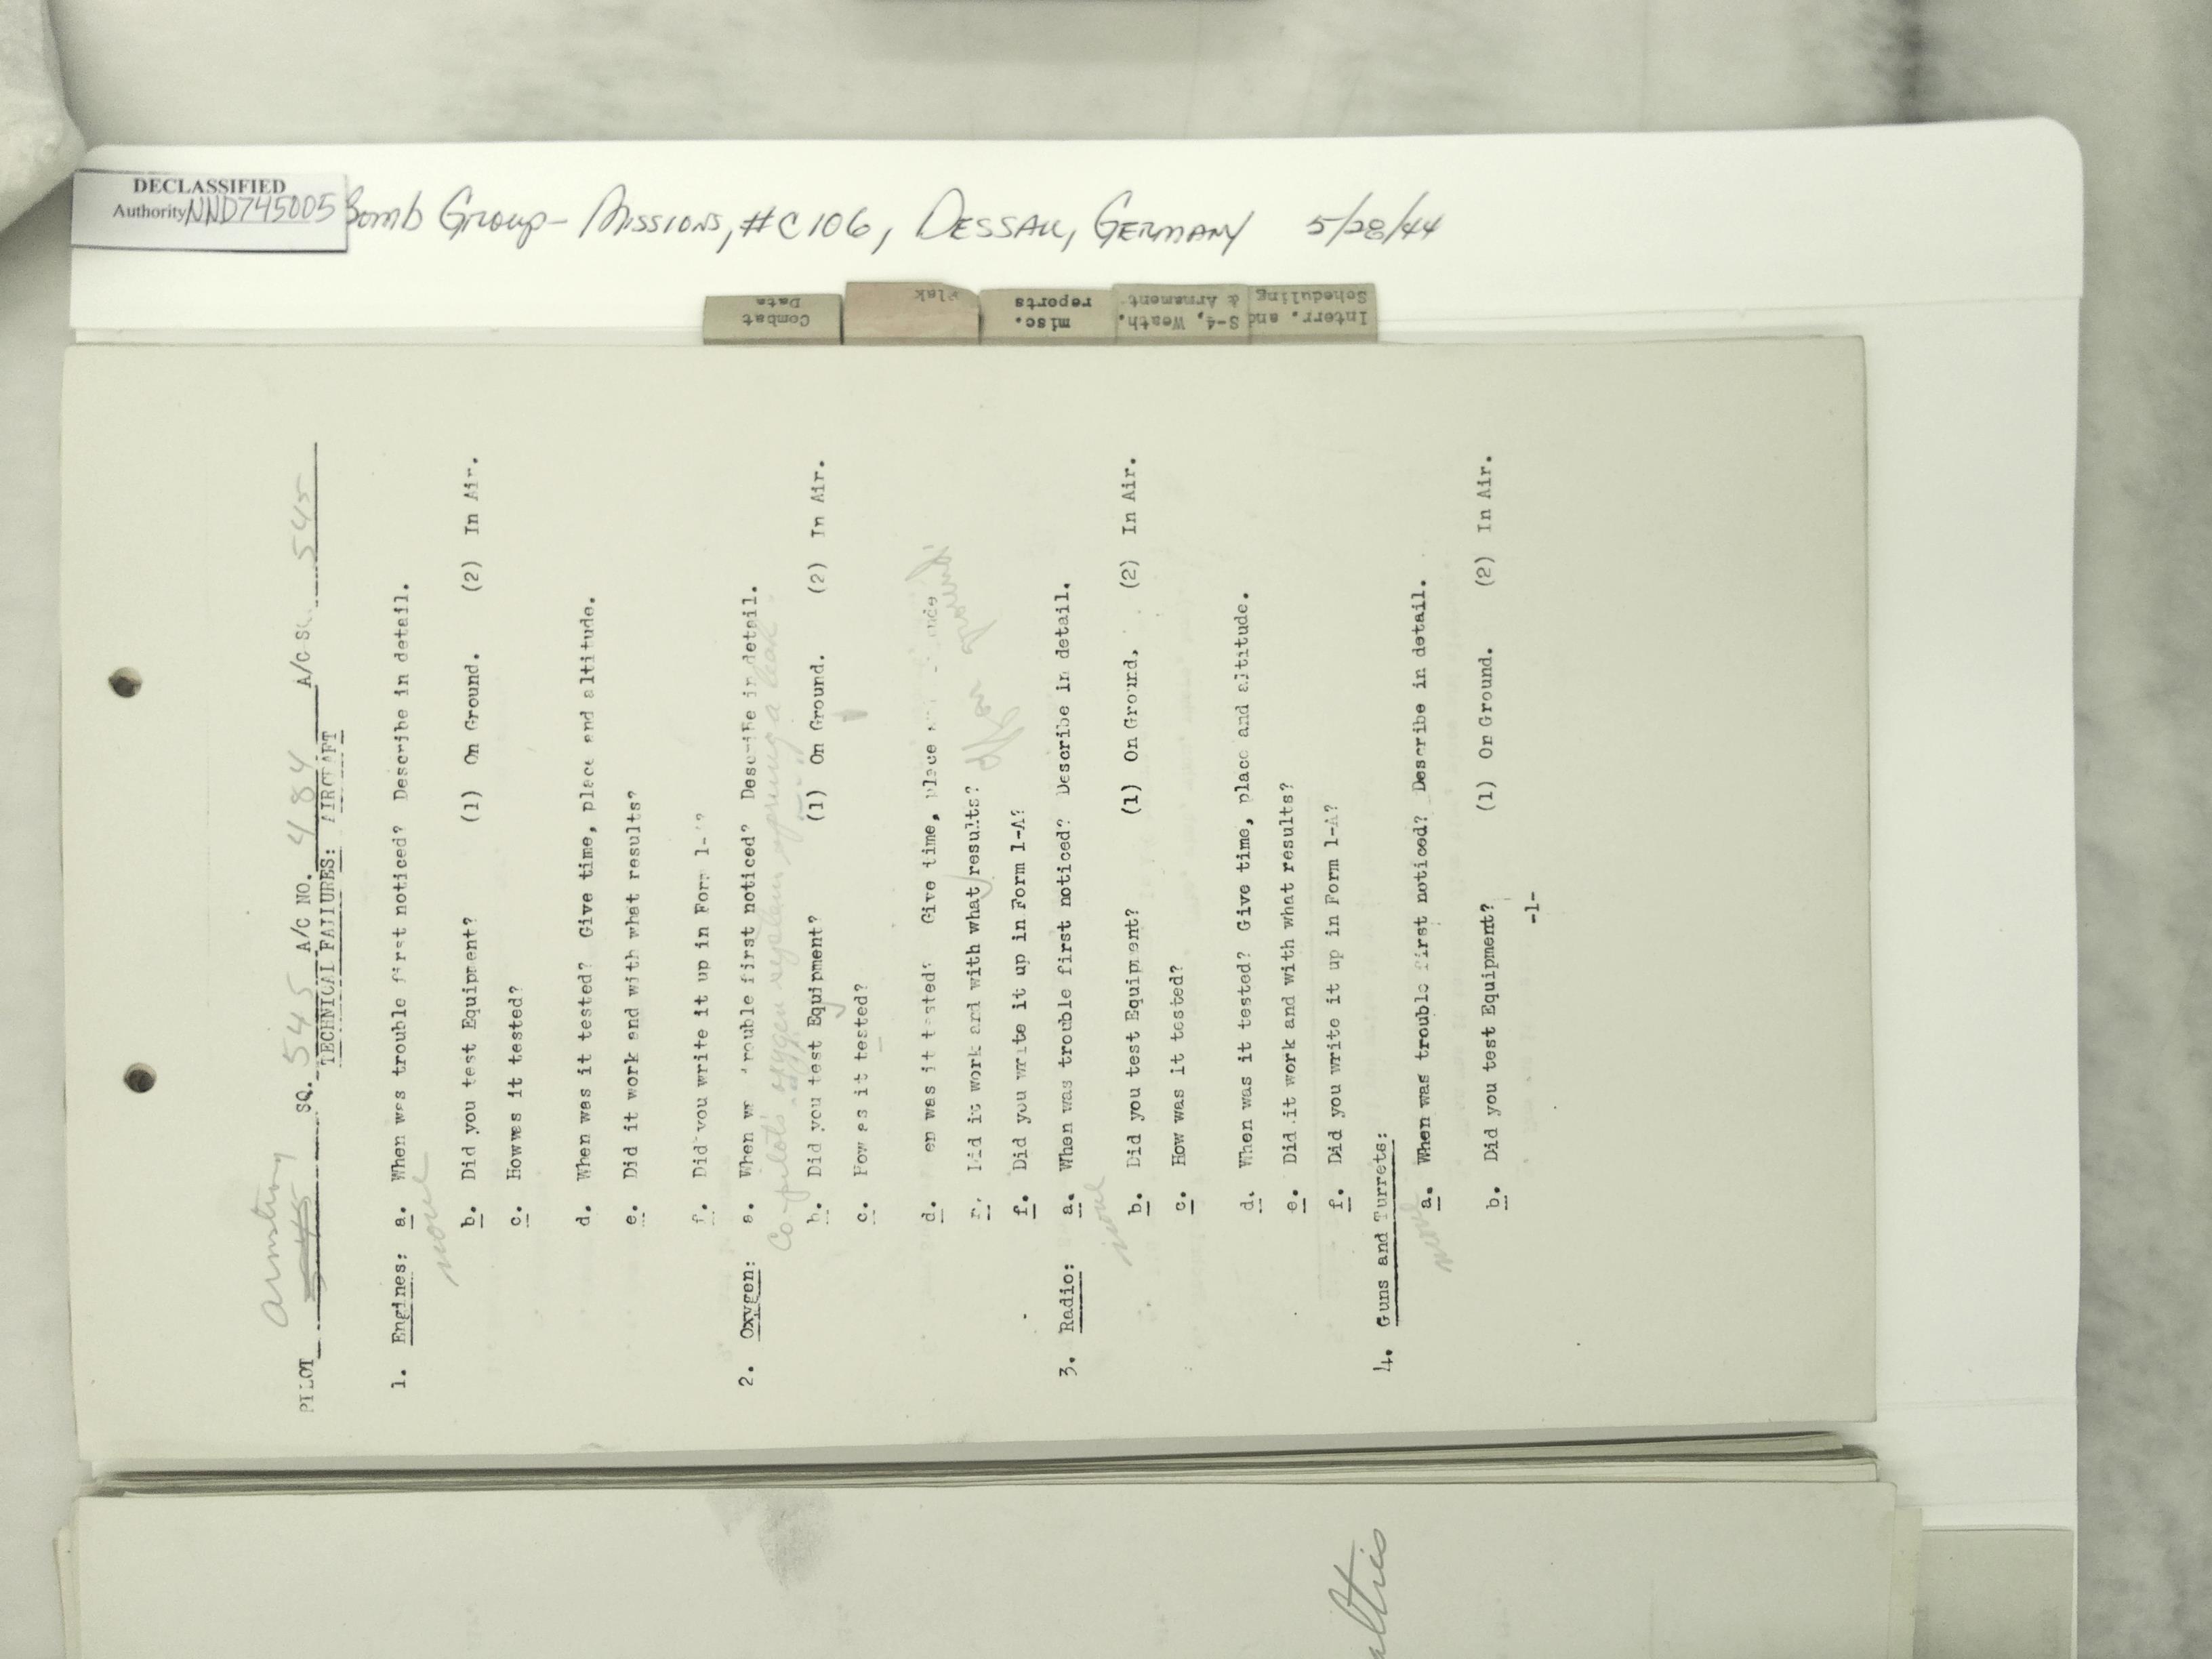 DECLASSIFIED
Authority NND745005
Bomb Group - Missions, #C106, Dessau, Germany 5/28/44
Combat Data
Flak
misc. reports
S-4, Weath. & Armament
Interr. and Scheduling
Armstrong
PILOT SQ. 545 A/C NO. 484 A/C 545
TECHNICAL FAILURES: AIRCRAFT
1. Engines: a. When was trouble first noticed? Describe in detail.
none
b. Did you test Equipment? (1) On Ground. (2) In Air.
c. How was it tested?
d. When was it tested? Give time, place and altitude.
e. Did it work and with what results?
f. Did you write it up in Form 1-A?
2. Oxygen: a. When was trouble first noticed? Describe in detail.
Co-pilots oxygen system sprung a leak.
b. Did you test Equipment? (1) On Ground. (2) In Air.
c. How was it tested?
d. When was it tested? Give time, place
e. Did it work and with what results? ground
f. Did you write it up in Form 1-A?
3. Radio: a. When was trouble first noticed? Describe in detail.
none
b. Did you test Equipment? (1) On Ground. (2) In Air.
c. How was it tested?
d. When was it tested? Give time, place and altitude.
e. Did it work and with what results?
f. Did you write it up in Form 1-A?
4. Guns and Turrets:
a. When was trouble first noticed? Describe in detail.
none
b. Did you test Equipment? (1) On Ground. (2) In Air.
-1-